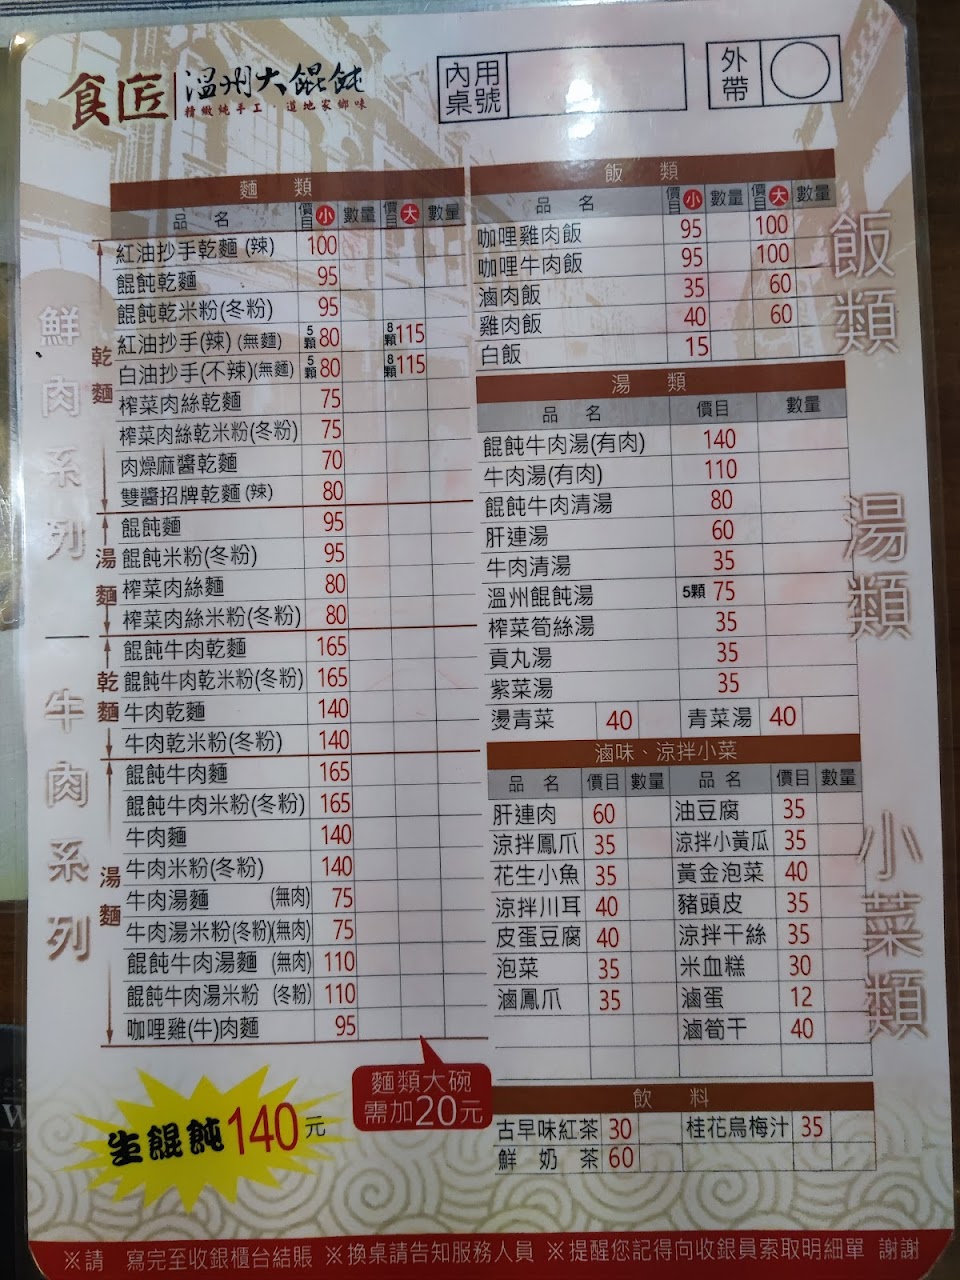 食匠 溫州大餛飩
精緻純手工．道地家鄉味
內用桌號
外帶
麵 類
品 名 價目 小 數量 價目 大 數量
鮮肉系列
乾麵
紅油抄手乾麵 (辣) 100
餛飩乾麵 95
餛飩乾米粉(冬粉) 95
紅油抄手(辣) (無麵) 5顆 80 8顆 115
白油抄手(不辣)(無麵) 5顆 80 8顆 115
榨菜肉絲乾麵 75
榨菜肉絲乾米粉(冬粉) 75
肉燥麻醬乾麵 70
雙醬招牌乾麵 (辣) 80
湯麵
餛飩麵 95
餛飩米粉(冬粉) 95
榨菜肉絲麵 80
榨菜肉絲米粉(冬粉) 80
牛肉系列
乾麵
餛飩牛肉乾麵 165
餛飩牛肉乾米粉(冬粉) 165
牛肉乾麵 140
牛肉乾米粉(冬粉) 140
湯麵
餛飩牛肉麵 165
餛飩牛肉米粉(冬粉) 165
牛肉麵 140
牛肉米粉(冬粉) 140
牛肉湯麵 (無肉) 75
牛肉湯米粉(冬粉)(無肉) 75
餛飩牛肉湯麵 (無肉) 110
餛飩牛肉湯米粉 (冬粉) 110
咖哩雞(牛)肉麵 95
麵類大碗
需加20元
生餛飩140元
飯類
飯 類
品 名 價目 小 數量 價目 大 數量
咖哩雞肉飯 95 100
咖哩牛肉飯 95 100
滷肉飯 35 60
雞肉飯 40 60
白飯 15
湯類
湯 類
品 名 價目 數量
餛飩牛肉湯(有肉) 140
牛肉湯(有肉) 110
餛飩牛肉清湯 80
肝連湯 60
牛肉清湯 35
溫州餛飩湯 5顆 75
榨菜筍絲湯 35
貢丸湯 35
紫菜湯 35
燙青菜 40 青菜湯 40
小菜類
滷味、涼拌小菜
品 名 價目 數量 品 名 價目 數量
肝連肉 60 油豆腐 35
涼拌鳳爪 35 涼拌小黃瓜 35
花生小魚 35 黃金泡菜 40
涼拌川耳 40 豬頭皮 35
皮蛋豆腐 40 涼拌干絲 35
泡菜 35 米血糕 30
滷鳳爪 35 滷蛋 12
滷筍干 40
飲 料
古早味紅茶 30 桂花烏梅汁 35
鮮 奶 茶 60
※請 寫完至收銀櫃台結賬 ※換桌請告知服務人員 ※提醒您記得向收銀員索取明細單 謝謝